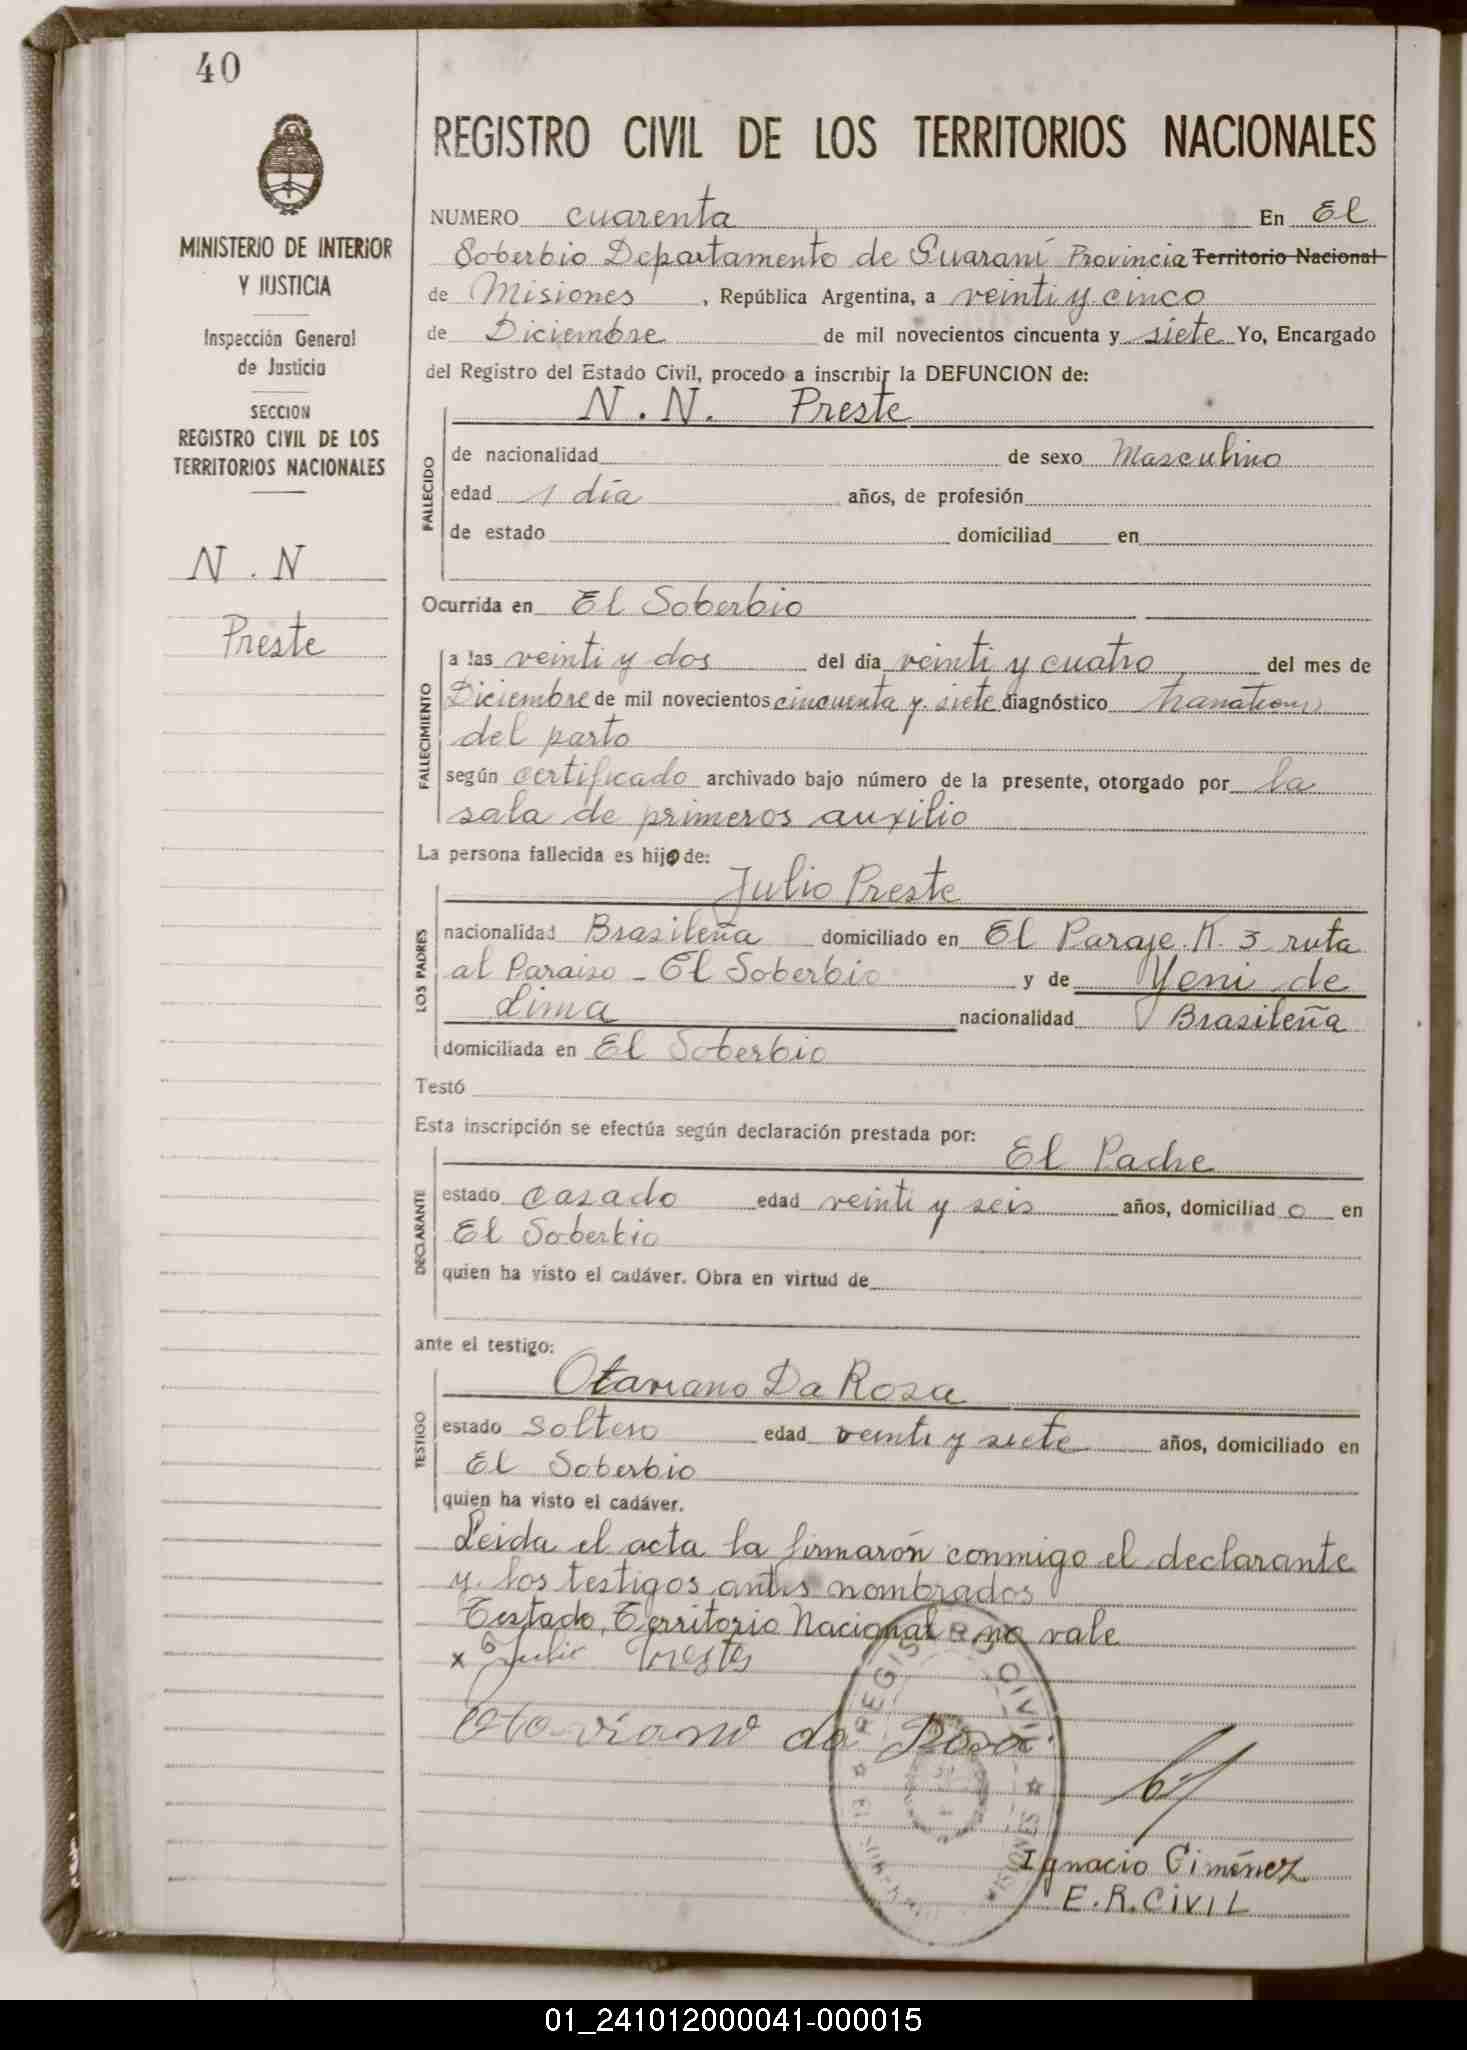 40
MINISTERIO DE INTERIOR
Y JUSTICIA
Inspección General
de Justicia
SECCION
REGISTRO CIVIL DE LOS
TERRITORIOS NACIONALES
N. N
Preste
REGISTRO CIVIL DE LOS TERRITORIOS NACIONALES
NUMERO cuarenta En El
Soberbio Departamento de Guaraní Provincia Territorio Nacional
de Misiones, República Argentina, a veinti y cinco
de Diciembre de mil novecientos cincuenta y siete Yo, Encargado
del Registro del Estado Civil, procedo a inscribir la DEFUNCION de:
N. N. Preste
FALLECIDO
de nacionalidad de sexo Masculino
edad 1 día años, de profesión
de estado domiciliad en
Ocurrida en El Soberbio
FALLECIMIENTO
a las veinti y dos del día veinti y cuatro del mes de
Diciembre de mil novecientos cincuenta y siete diagnóstico
del parto
según certificado archivado bajo número de la presente, otorgado por la
sala de primeros auxilio
La persona fallecida es hijo de:
Julio Preste
LOS PADRES
nacionalidad Brasileña domiciliado en El Paraje K. 3 ruta
al Paraiso - El Soberbio y de Yeni de
Lima nacionalidad Brasileña
domiciliada en El Soberbio
Testó
Esta inscripción se efectúa según declaración prestada por:
El Padre
DECLARANTE
estado casado edad veinti y seis años, domiciliad o en
El Soberbio
quien ha visto el cadáver. Obra en virtud de
ante el testigo:
Otaviano Da Rosa
TESTIGO
estado soltero edad veinti y siete años, domiciliado en
El Soberbio
quien ha visto el cadáver.
Leida el acta la firmarón conmigo el declarante
y los testigos antes nombrados
Testado, Territorio Nacional no vale
x Julio Prestes
Otaviano da Rosa
REGISTRO CIVIL
MISIONES
Ignacio Giménez
E.R.CIVIL
01_241012000041-000015